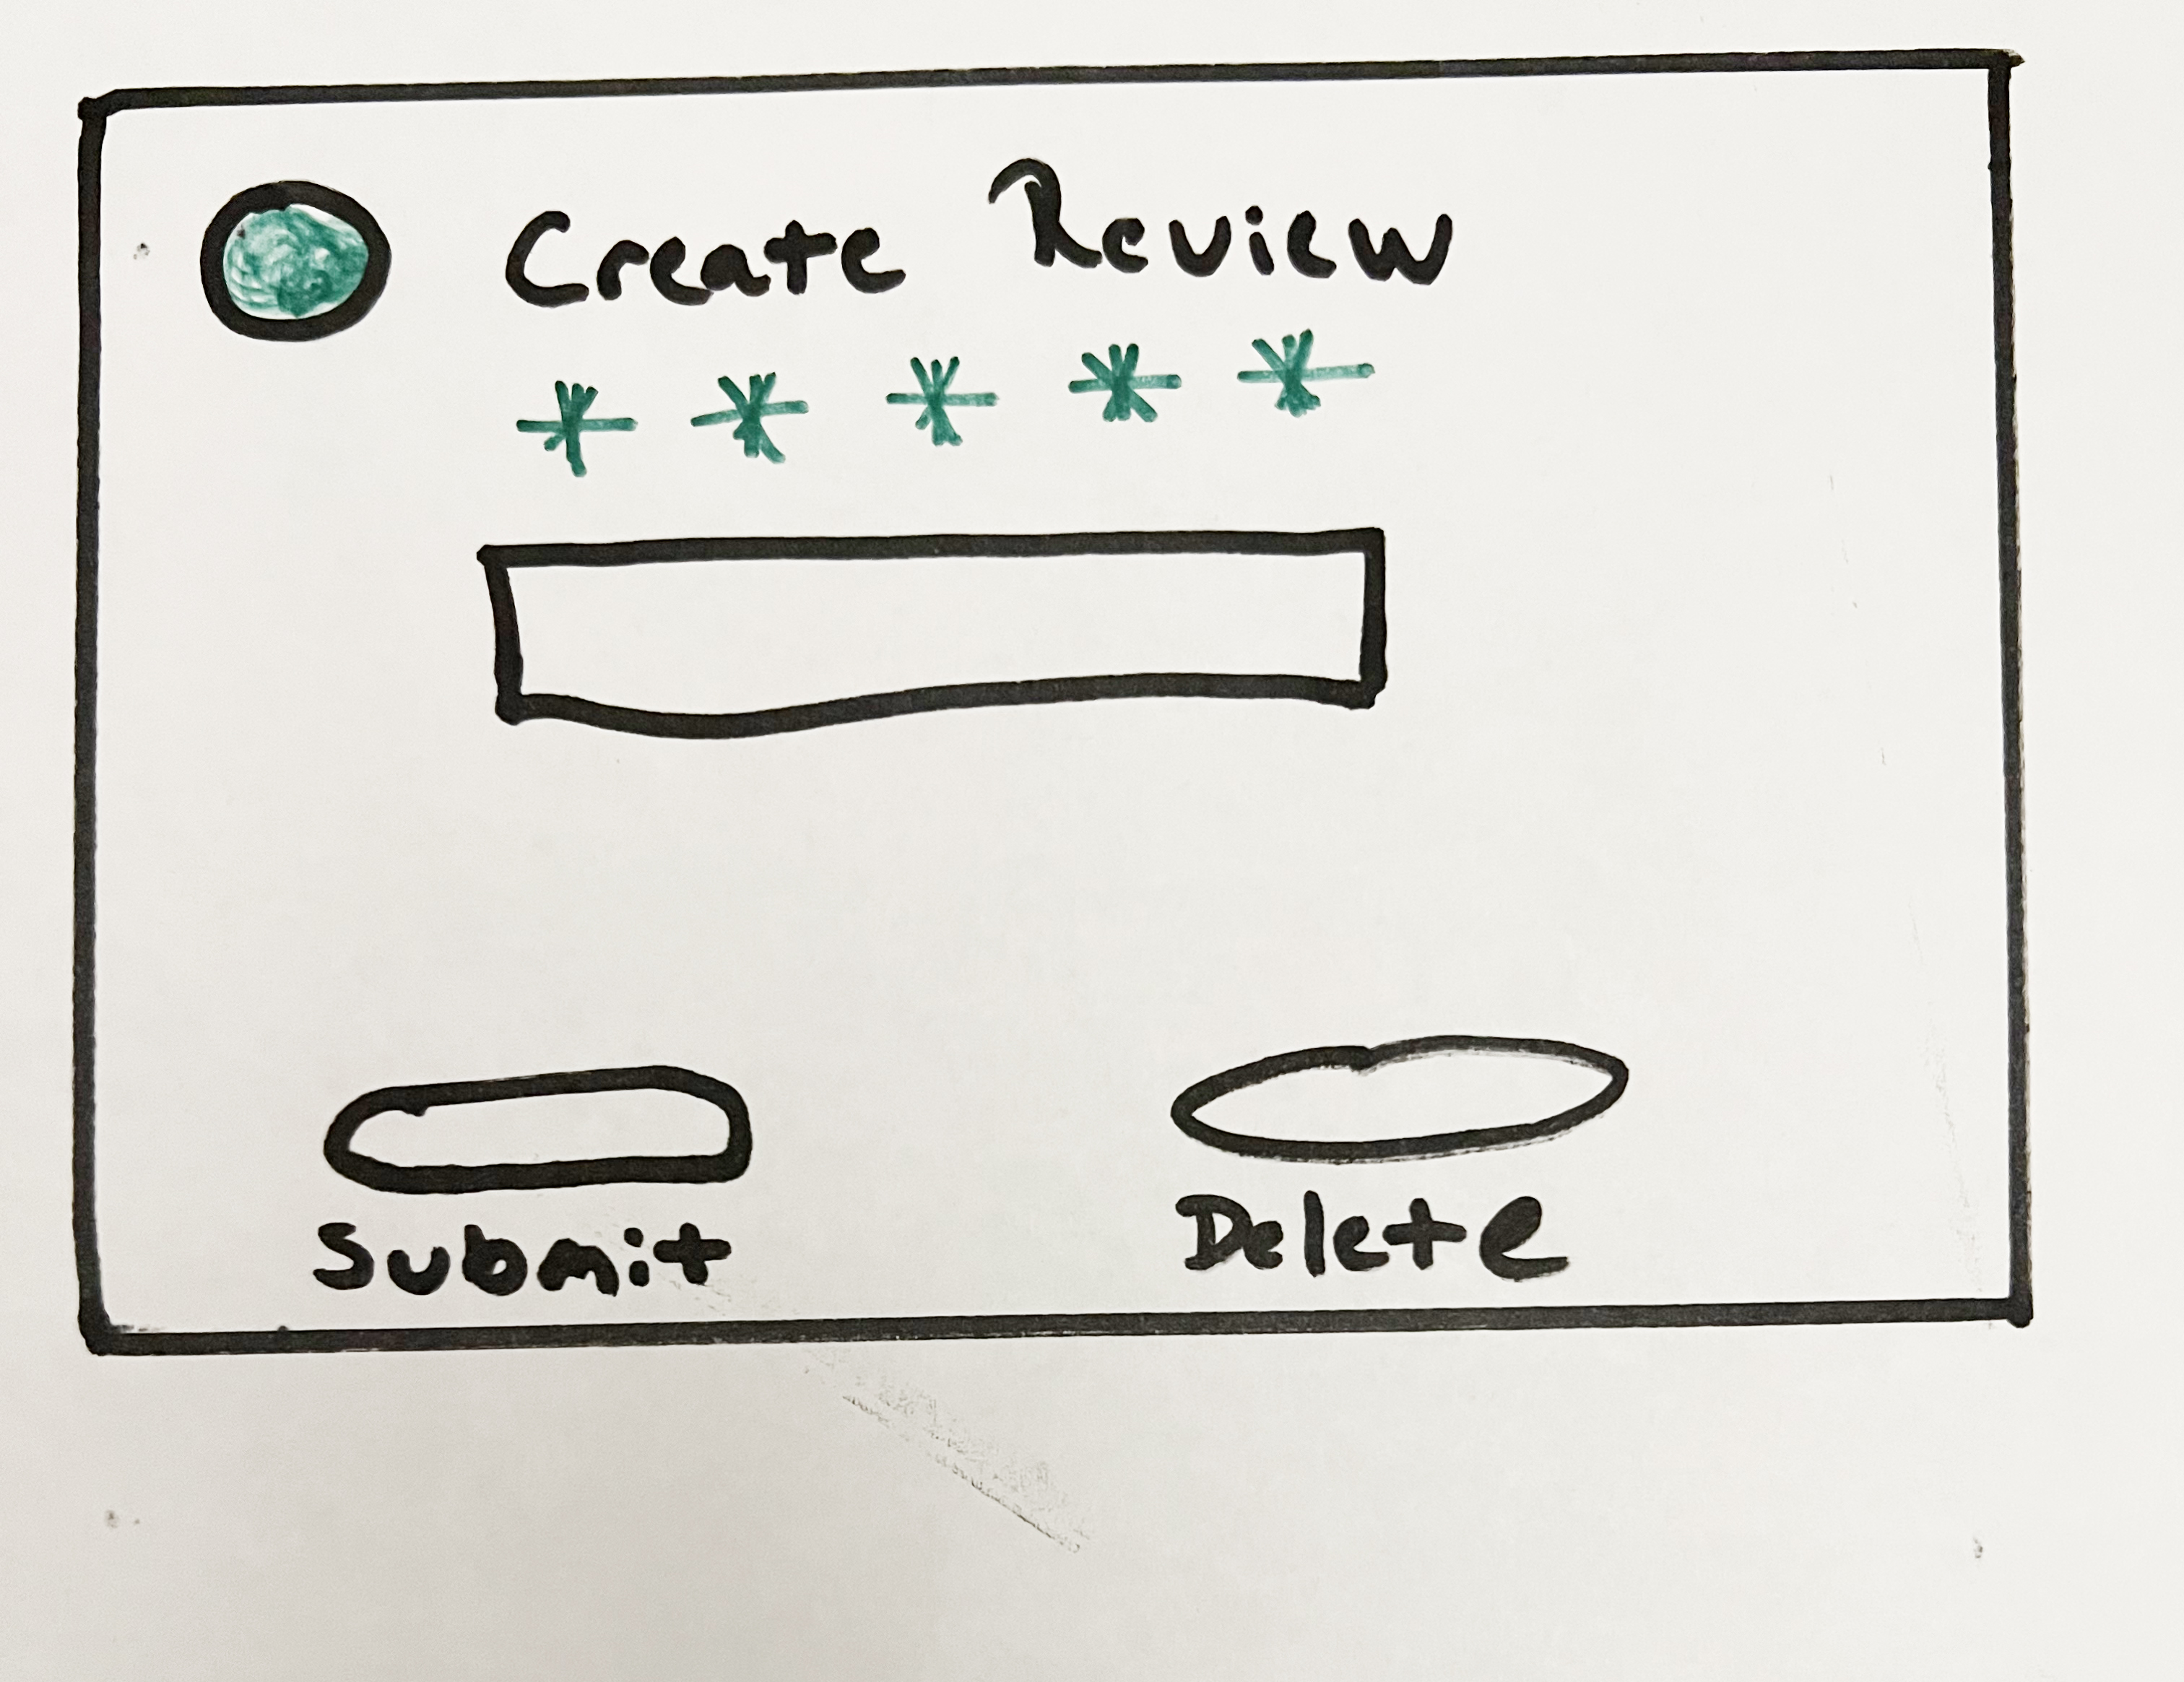 Create Review
* * * * *
Submit Delete